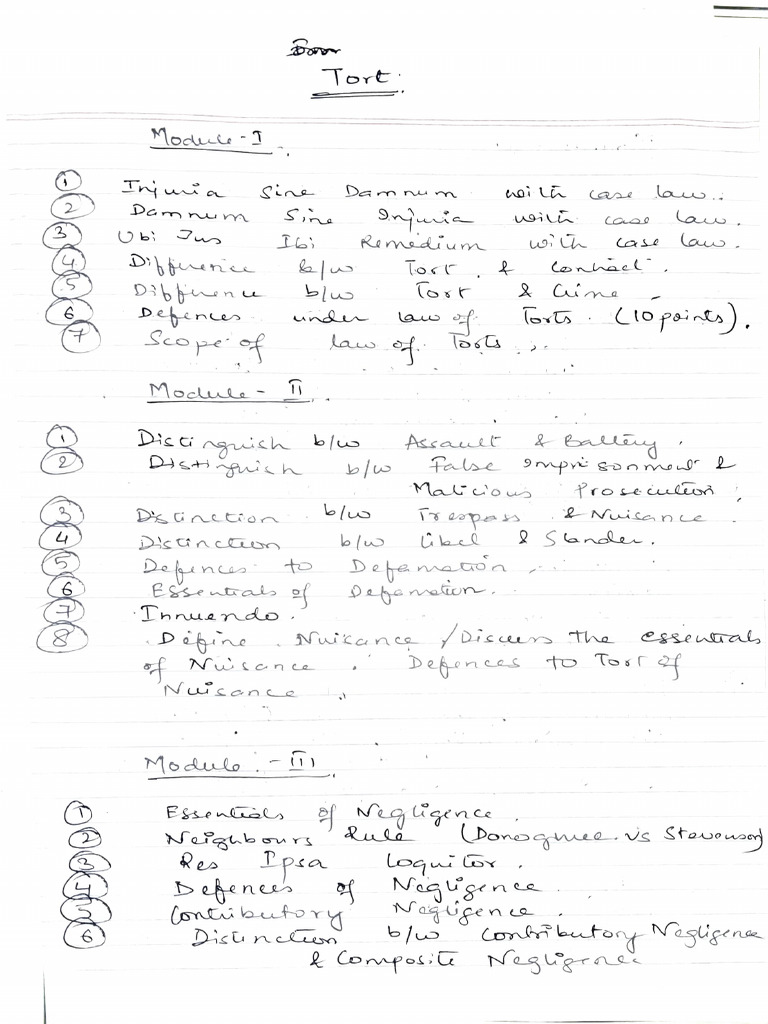 Tort.
Module - I
① Injuria Sine Damnum with case law..
② Damnum Sine Injuria with case law.
③ Ubi Jus Ibi Remedium with case law.
④ Difference b/w Tort & Contract.
⑤ Difference b/w Tort & Crime
⑥ Defences under law of Torts. (10 points).
⑦ Scope of law of Torts..
Module - II
① Distinguish b/w Assault & Battery.
② Distinguish b/w False Imprisonment &
Malicious Prosecution.
③ Distinction b/w Trespass & Nuisance.
④ Distinction b/w Libel & Slander.
⑤ Defences to Defamation.
⑥ Essentials of Defamation.
⑦ Innuendo.
⑧ Define Nuisance / Discuss the essentials
of Nuisance. Defences to Tort of
Nuisance..
Module - III
① Essentials of Negligence.
② Neighbours Rule (Donoghue vs Stevenson)
③ Res Ipsa Loquitor.
④ Defences of Negligence.
⑤ Contributory Negligence.
⑥ Distinction b/w Contributory Negligence
& Composite Negligence